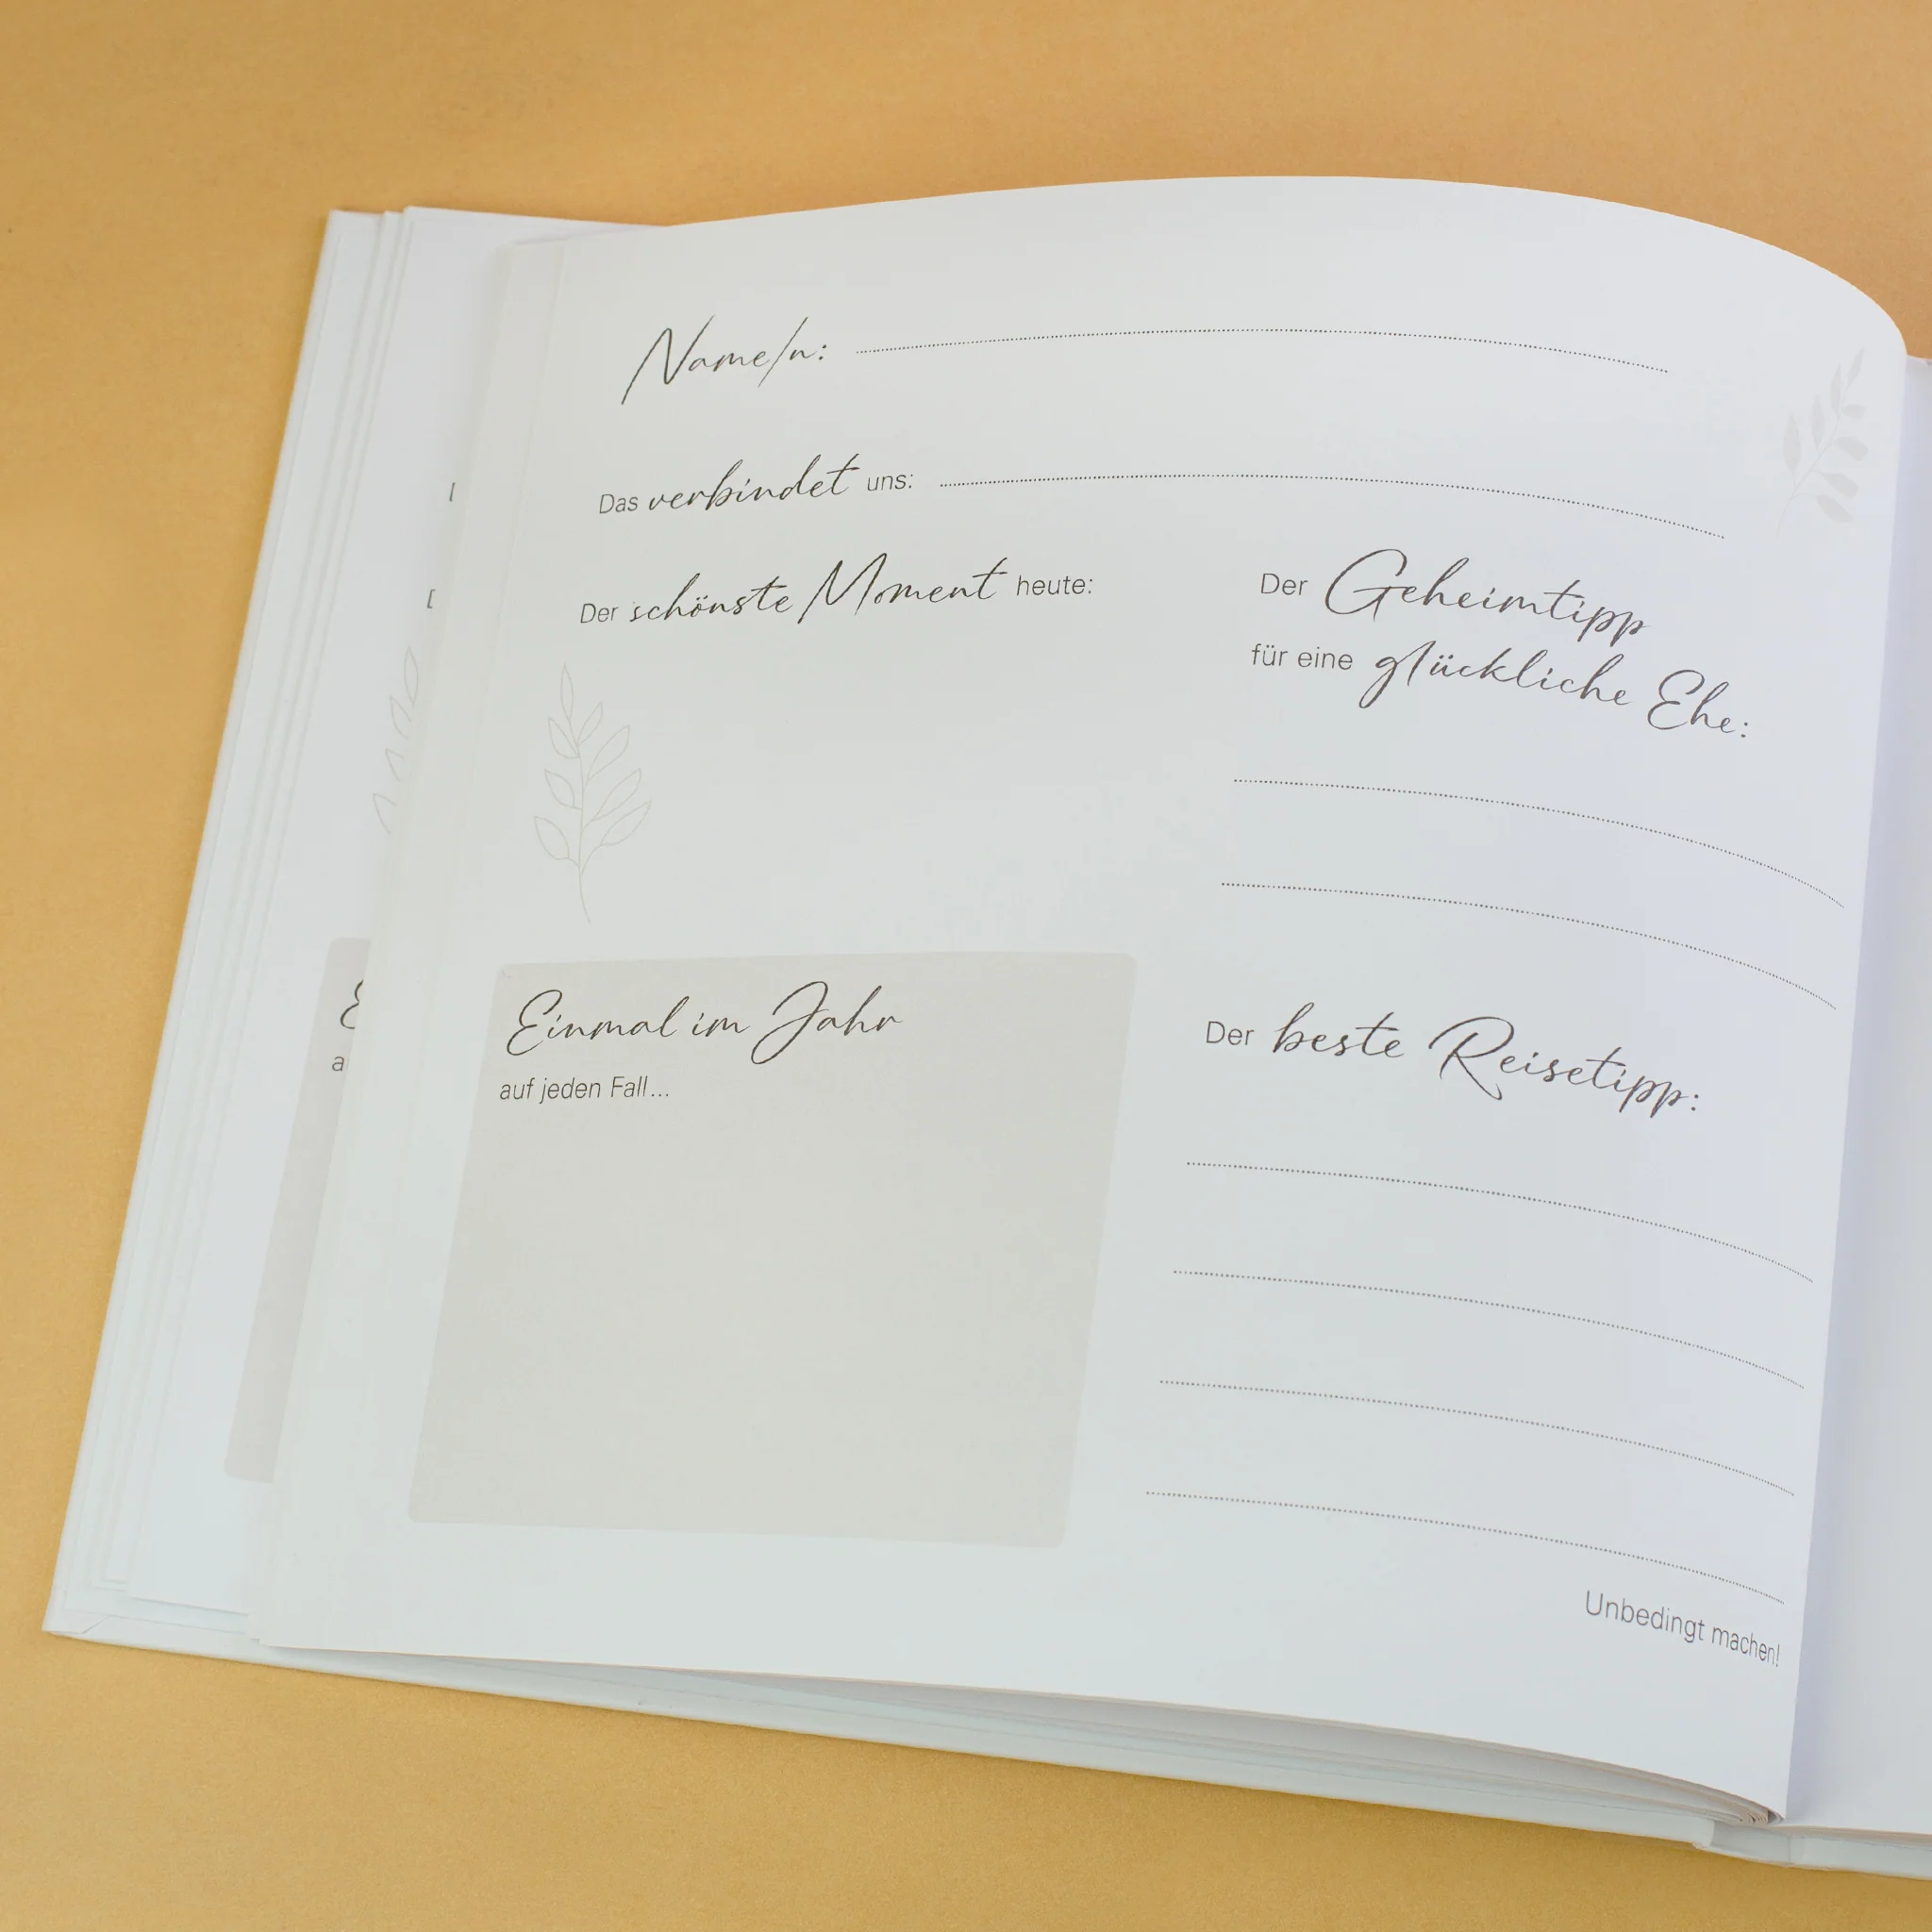 Name/n:
Das verbindet uns:
Der schönste Moment heute:
Der Geheimtipp
für eine glückliche Ehe:
Einmal im Jahr
auf jeden Fall...
Der beste Reisetipp:
Unbedingt machen!